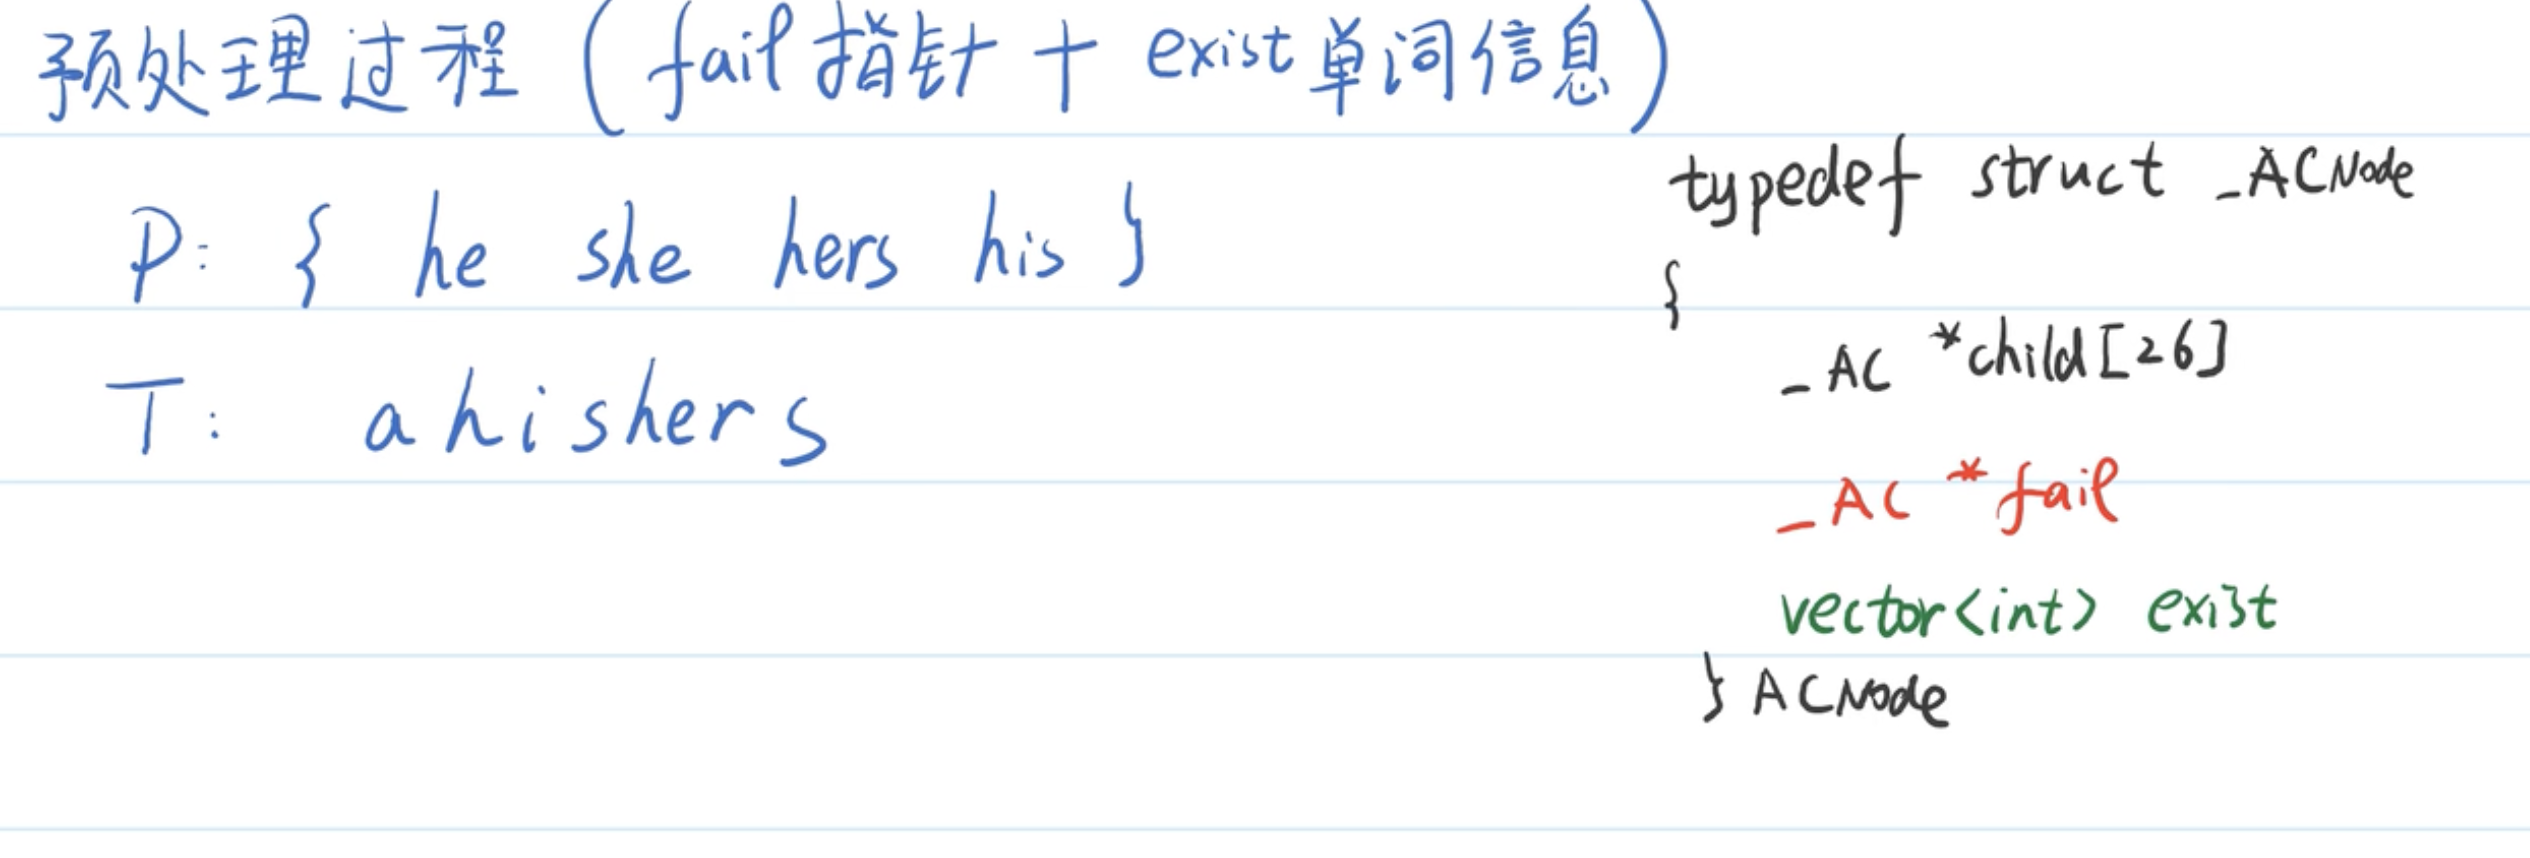 预处理过程 (fail指针 + exist单词信息)
P: { he she hers his }
T: ahishers
typedef struct _ACNode
{
_AC *child[26]
_AC *fail
vector<int> exist
} ACNode